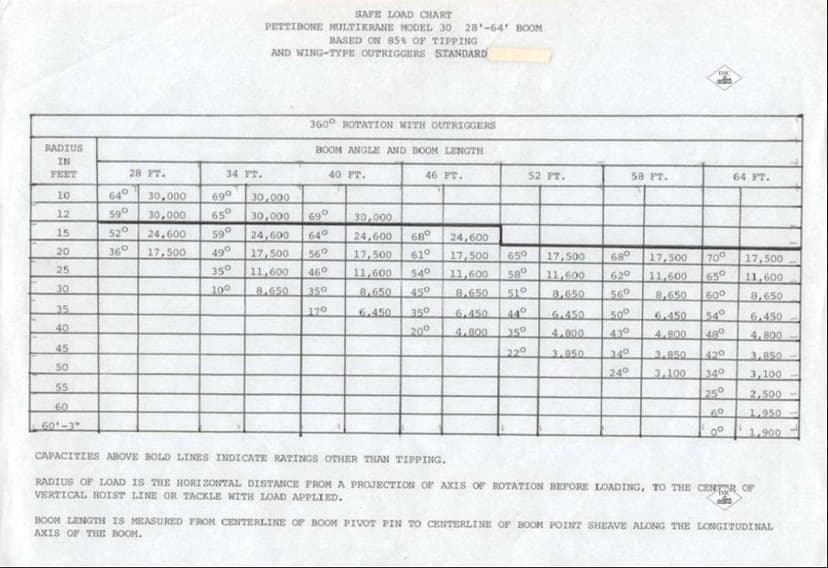 SAFE LOAD CHART
PETTIBONE MULTIKRANE MODEL 30 28'-64' BOOM
BASED ON 85% OF TIPPING
AND WING-TYPE OUTRIGGERS STANDARD
360° ROTATION WITH OUTRIGGERS
RADIUS IN FEET BOOM ANGLE AND BOOM LENGTH
28 FT. 34 FT. 40 FT. 46 FT. 52 FT. 58 FT. 64 FT.
10 64° 30,000 69° 30,000
12 59° 30,000 65° 30,000 69° 30,000
15 52° 24,600 59° 24,600 64° 24,600 68° 24,600
20 36° 17,500 49° 17,500 56° 17,500 61° 17,500 65° 17,500 68° 17,500 70° 17,500
25 35° 11,600 46° 11,600 54° 11,600 58° 11,600 62° 11,600 65° 11,600
30 10° 8,650 35° 8,650 45° 8,650 51° 8,650 56° 8,650 60° 8,650
35 17° 6,450 35° 6,450 44° 6,450 50° 6,450 54° 6,450
40 20° 4,800 35° 4,800 43° 4,800 48° 4,800
45 22° 3,850 34° 3,850 42° 3,850
50 24° 3,100 34° 3,100
55 25° 2,500
60 6° 1,950
60'-3" 0° 1,900
CAPACITIES ABOVE BOLD LINES INDICATE RATINGS OTHER THAN TIPPING.
RADIUS OF LOAD IS THE HORIZONTAL DISTANCE FROM A PROJECTION OF AXIS OF ROTATION BEFORE LOADING, TO THE CENTER OF
VERTICAL HOIST LINE OR TACKLE WITH LOAD APPLIED.
BOOM LENGTH IS MEASURED FROM CENTERLINE OF BOOM PIVOT PIN TO CENTERLINE OF BOOM POINT SHEAVE ALONG THE LONGITUDINAL
AXIS OF THE BOOM.